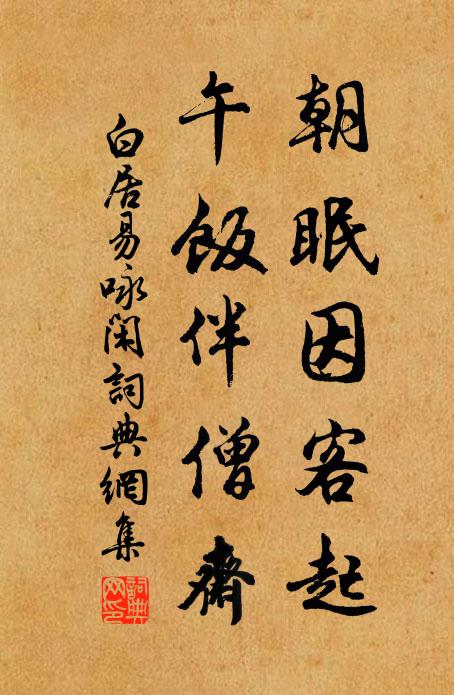 朝眠因客起
午飯伴僧齋
白居易咏閑詞典網集
詞典网印